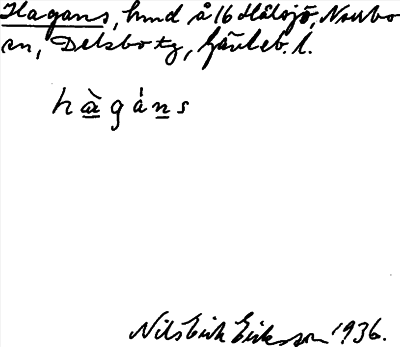 Hagans, hmd å 16 Hålsjö, Norrbo
sn, Delsbo tg, Gävleb. l.
hàgáns
Nils Erik Eriksson 1936.